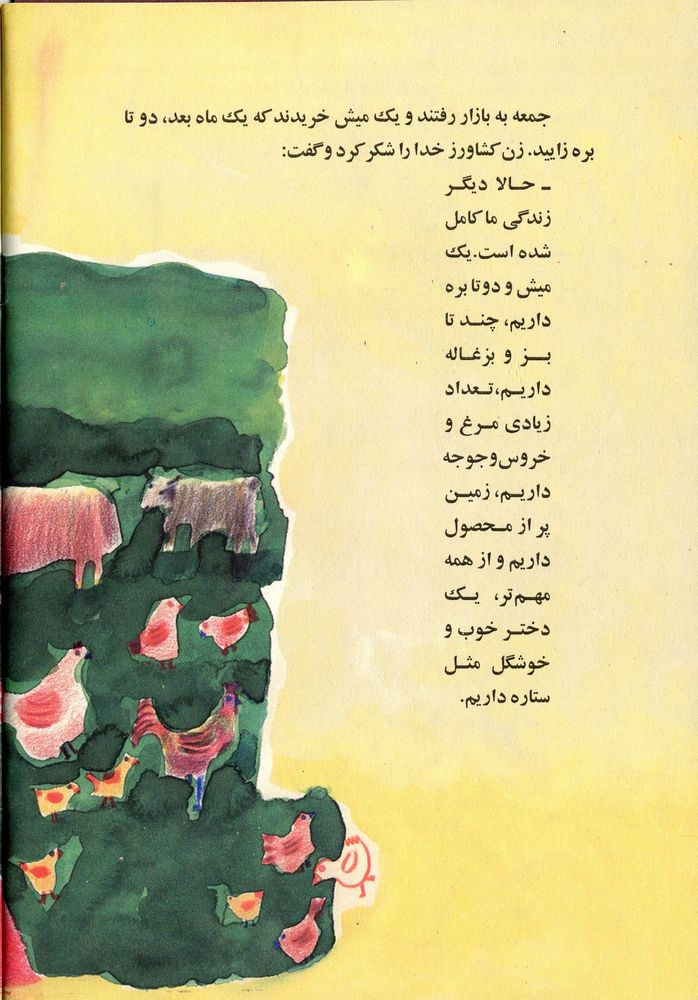 جمعه به بازار رفتند و یک میش خریدند که یک ماه بعد، دو تا
بره زایید. زن کشاورز خدا را شکر کرد و گفت:
ـ حالا دیگر
زندگی ما کامل
شده است. یک
میش و دوتا بره
داریم، چند تا
بز و بزغاله
داریم، تعداد
زیادی مرغ و
خروس و جوجه
داریم، زمین
پر از محصول
داریم و از همه
مهم‌تر، یک
دختر خوب و
خوشگل مثل
ستاره داریم.